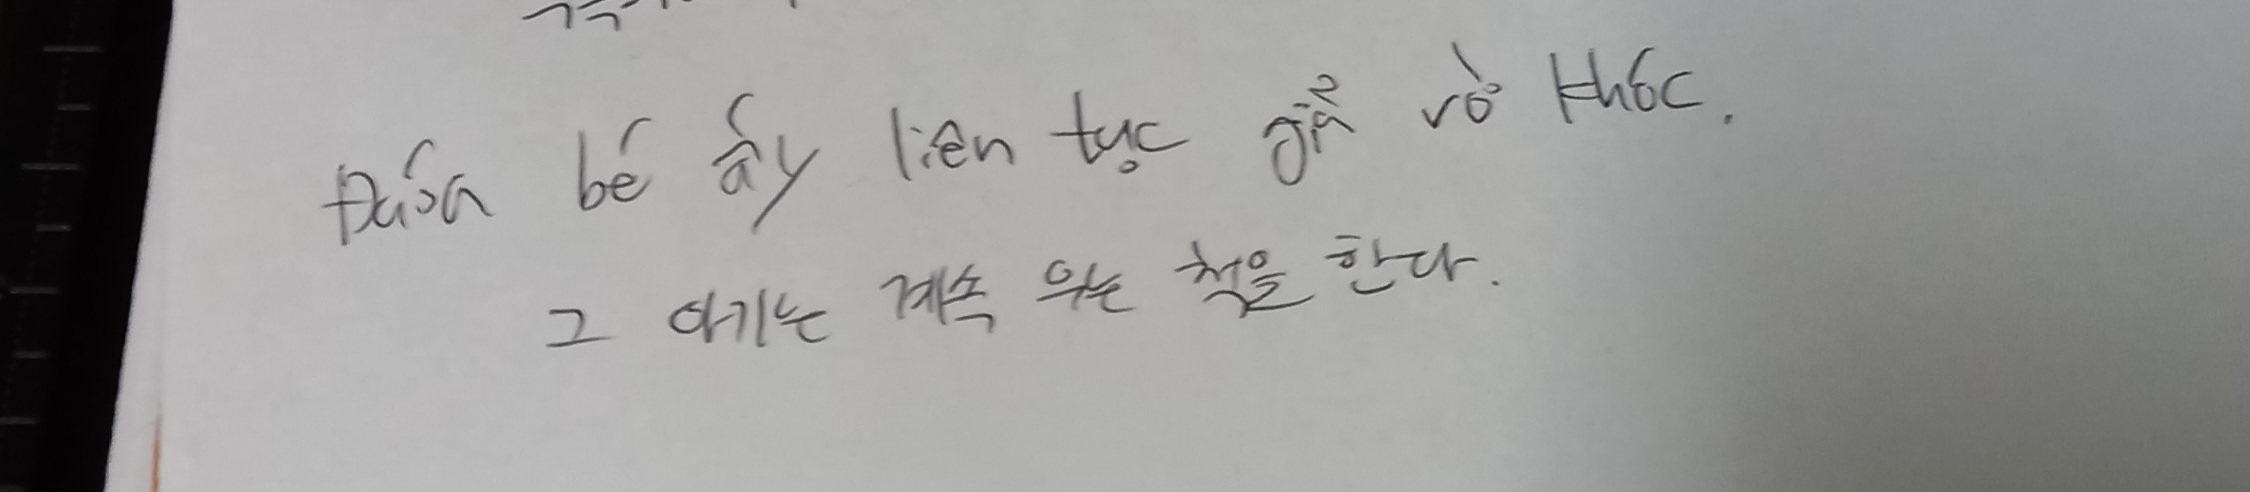 Đứa bé ấy liên tục giả vờ khóc.
그 아기는 계속 우는 척을 한다.